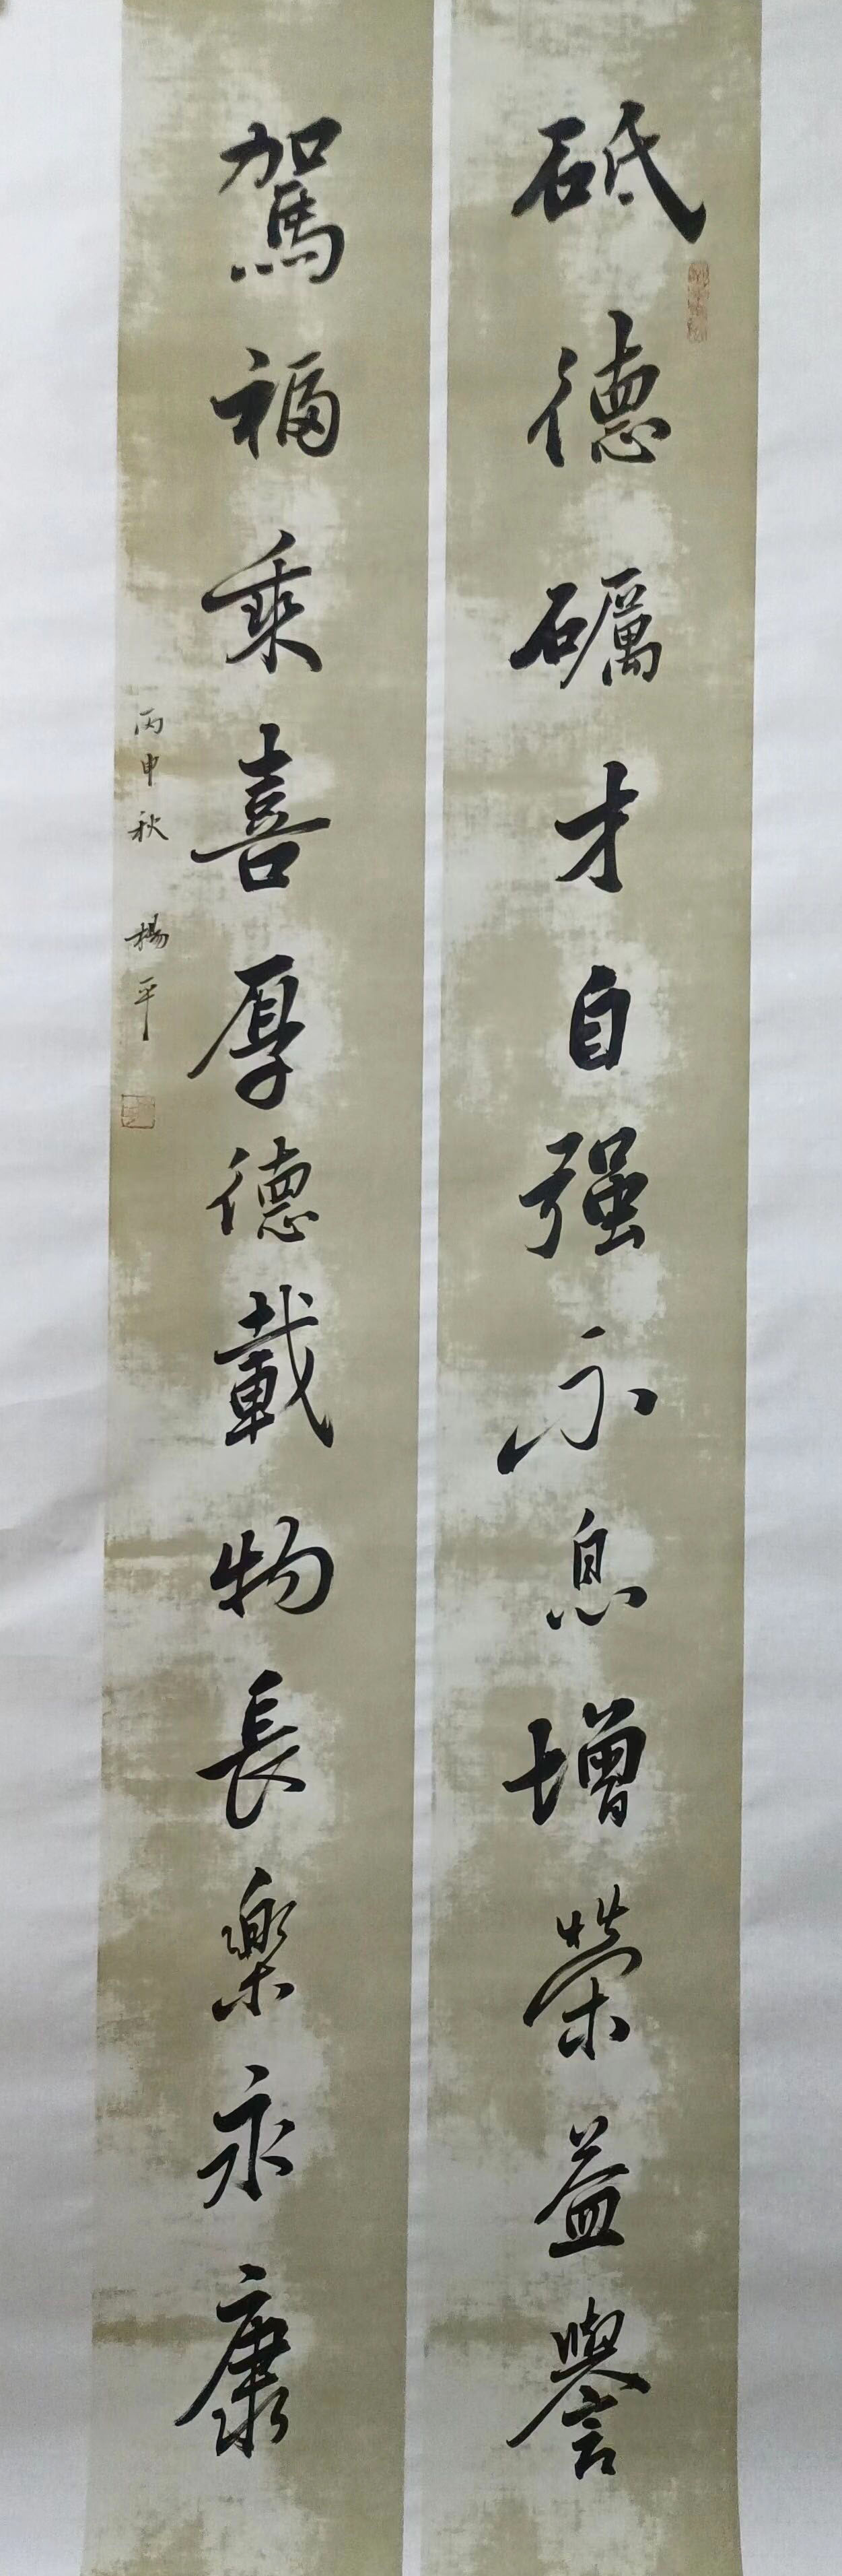 砥德礪才自强不息增榮益譽
駕福乘喜厚德載物長樂永康
丙申秋 楊平